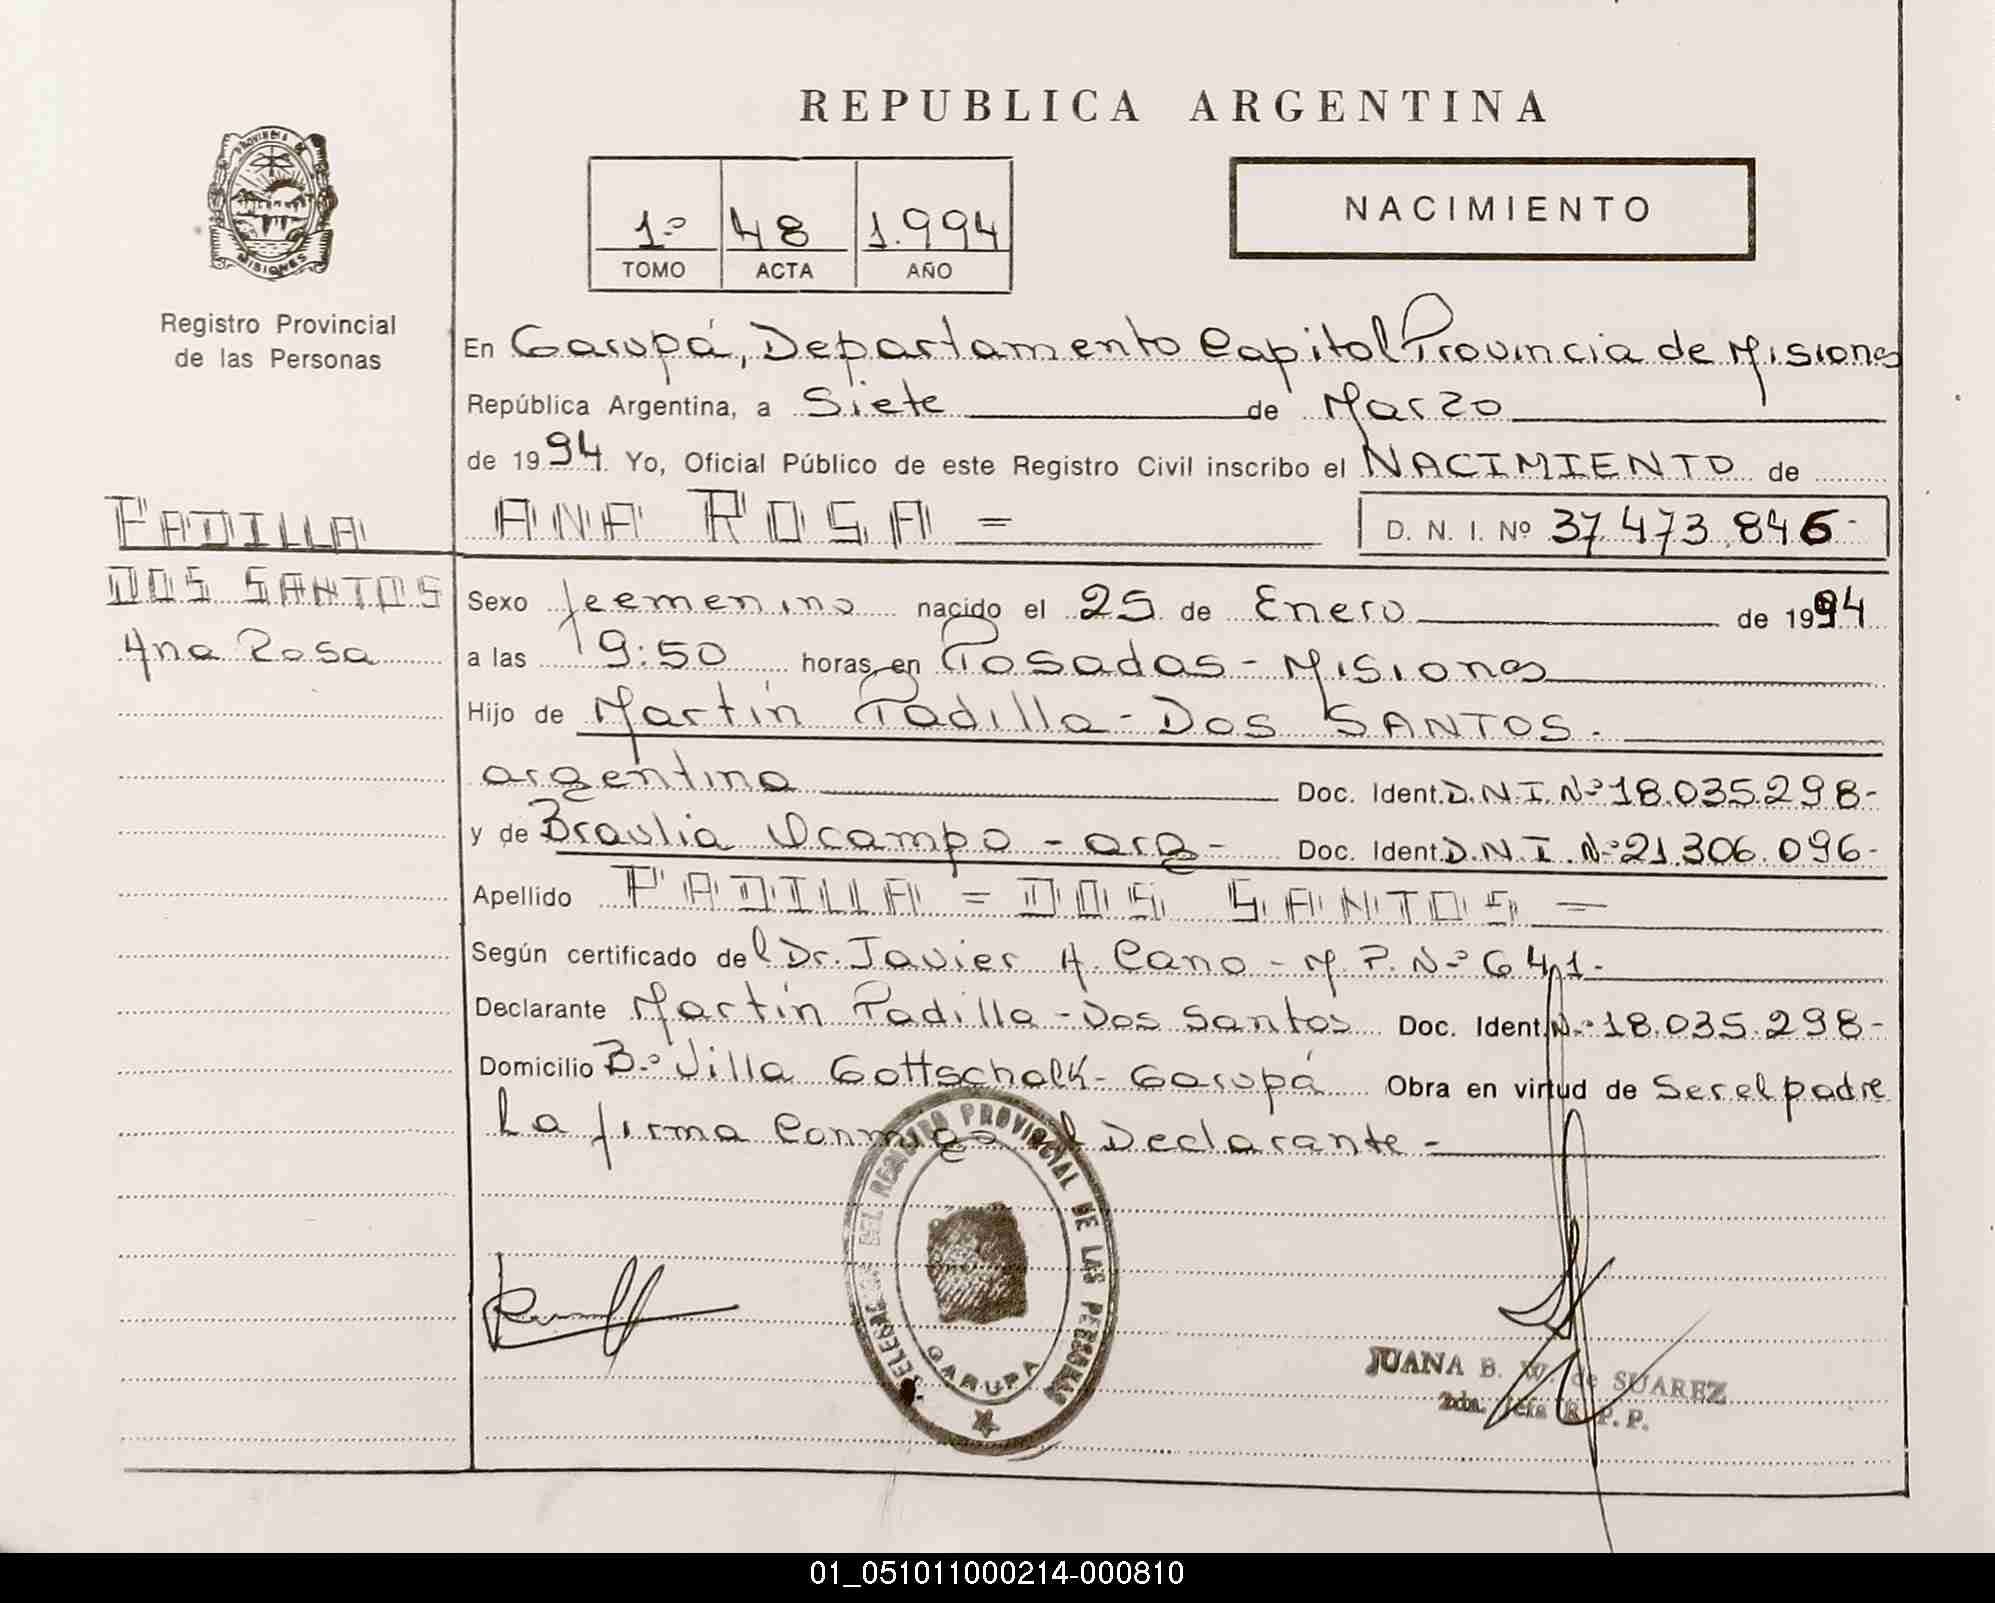 REPUBLICA ARGENTINA
PROVINCIA DE
MISIONES
Registro Provincial
de las Personas
1º 48 1.994
TOMO ACTA AÑO
NACIMIENTO
En Garupá, Departamento Capital Provincia de Misiones
República Argentina, a Siete de Marzo
de 1994 Yo, Oficial Público de este Registro Civil inscribo el NACIMIENTO de
ANA ROSA = D. N. I. Nº 37.473.846-
PADILLA
DOS SANTOS
Ana Rosa
Sexo feemenino nacido el 25 de Enero de 1994
a las 19:50 horas en Posadas - Misiones
Hijo de Martín Padilla - Dos SANTOS.
argentino Doc. Ident. D.N.I. Nº 18.035.298-
y de Braulia Ocampo - arg - Doc. Ident. D.N.I. Nº 21.306.096-
Apellido PADILLA = DOS SANTOS =
Según certificado del Dr. Javier A. Cano - M.P. Nº 641-
Declarante Martín Padilla - Dos Santos Doc. Ident. Nº 18.035.298-
Domicilio Bº Villa Gottschalk - Garupá Obra en virtud de Ser el padre
La firma Conmigo el Declarante -
DEL REGISTRO PROVINCIAL DE LAS PERSONAS
GARUPA
JUANA B. W. de SUAREZ
2da. Jefa R. P. P.
01_051011000214-000810